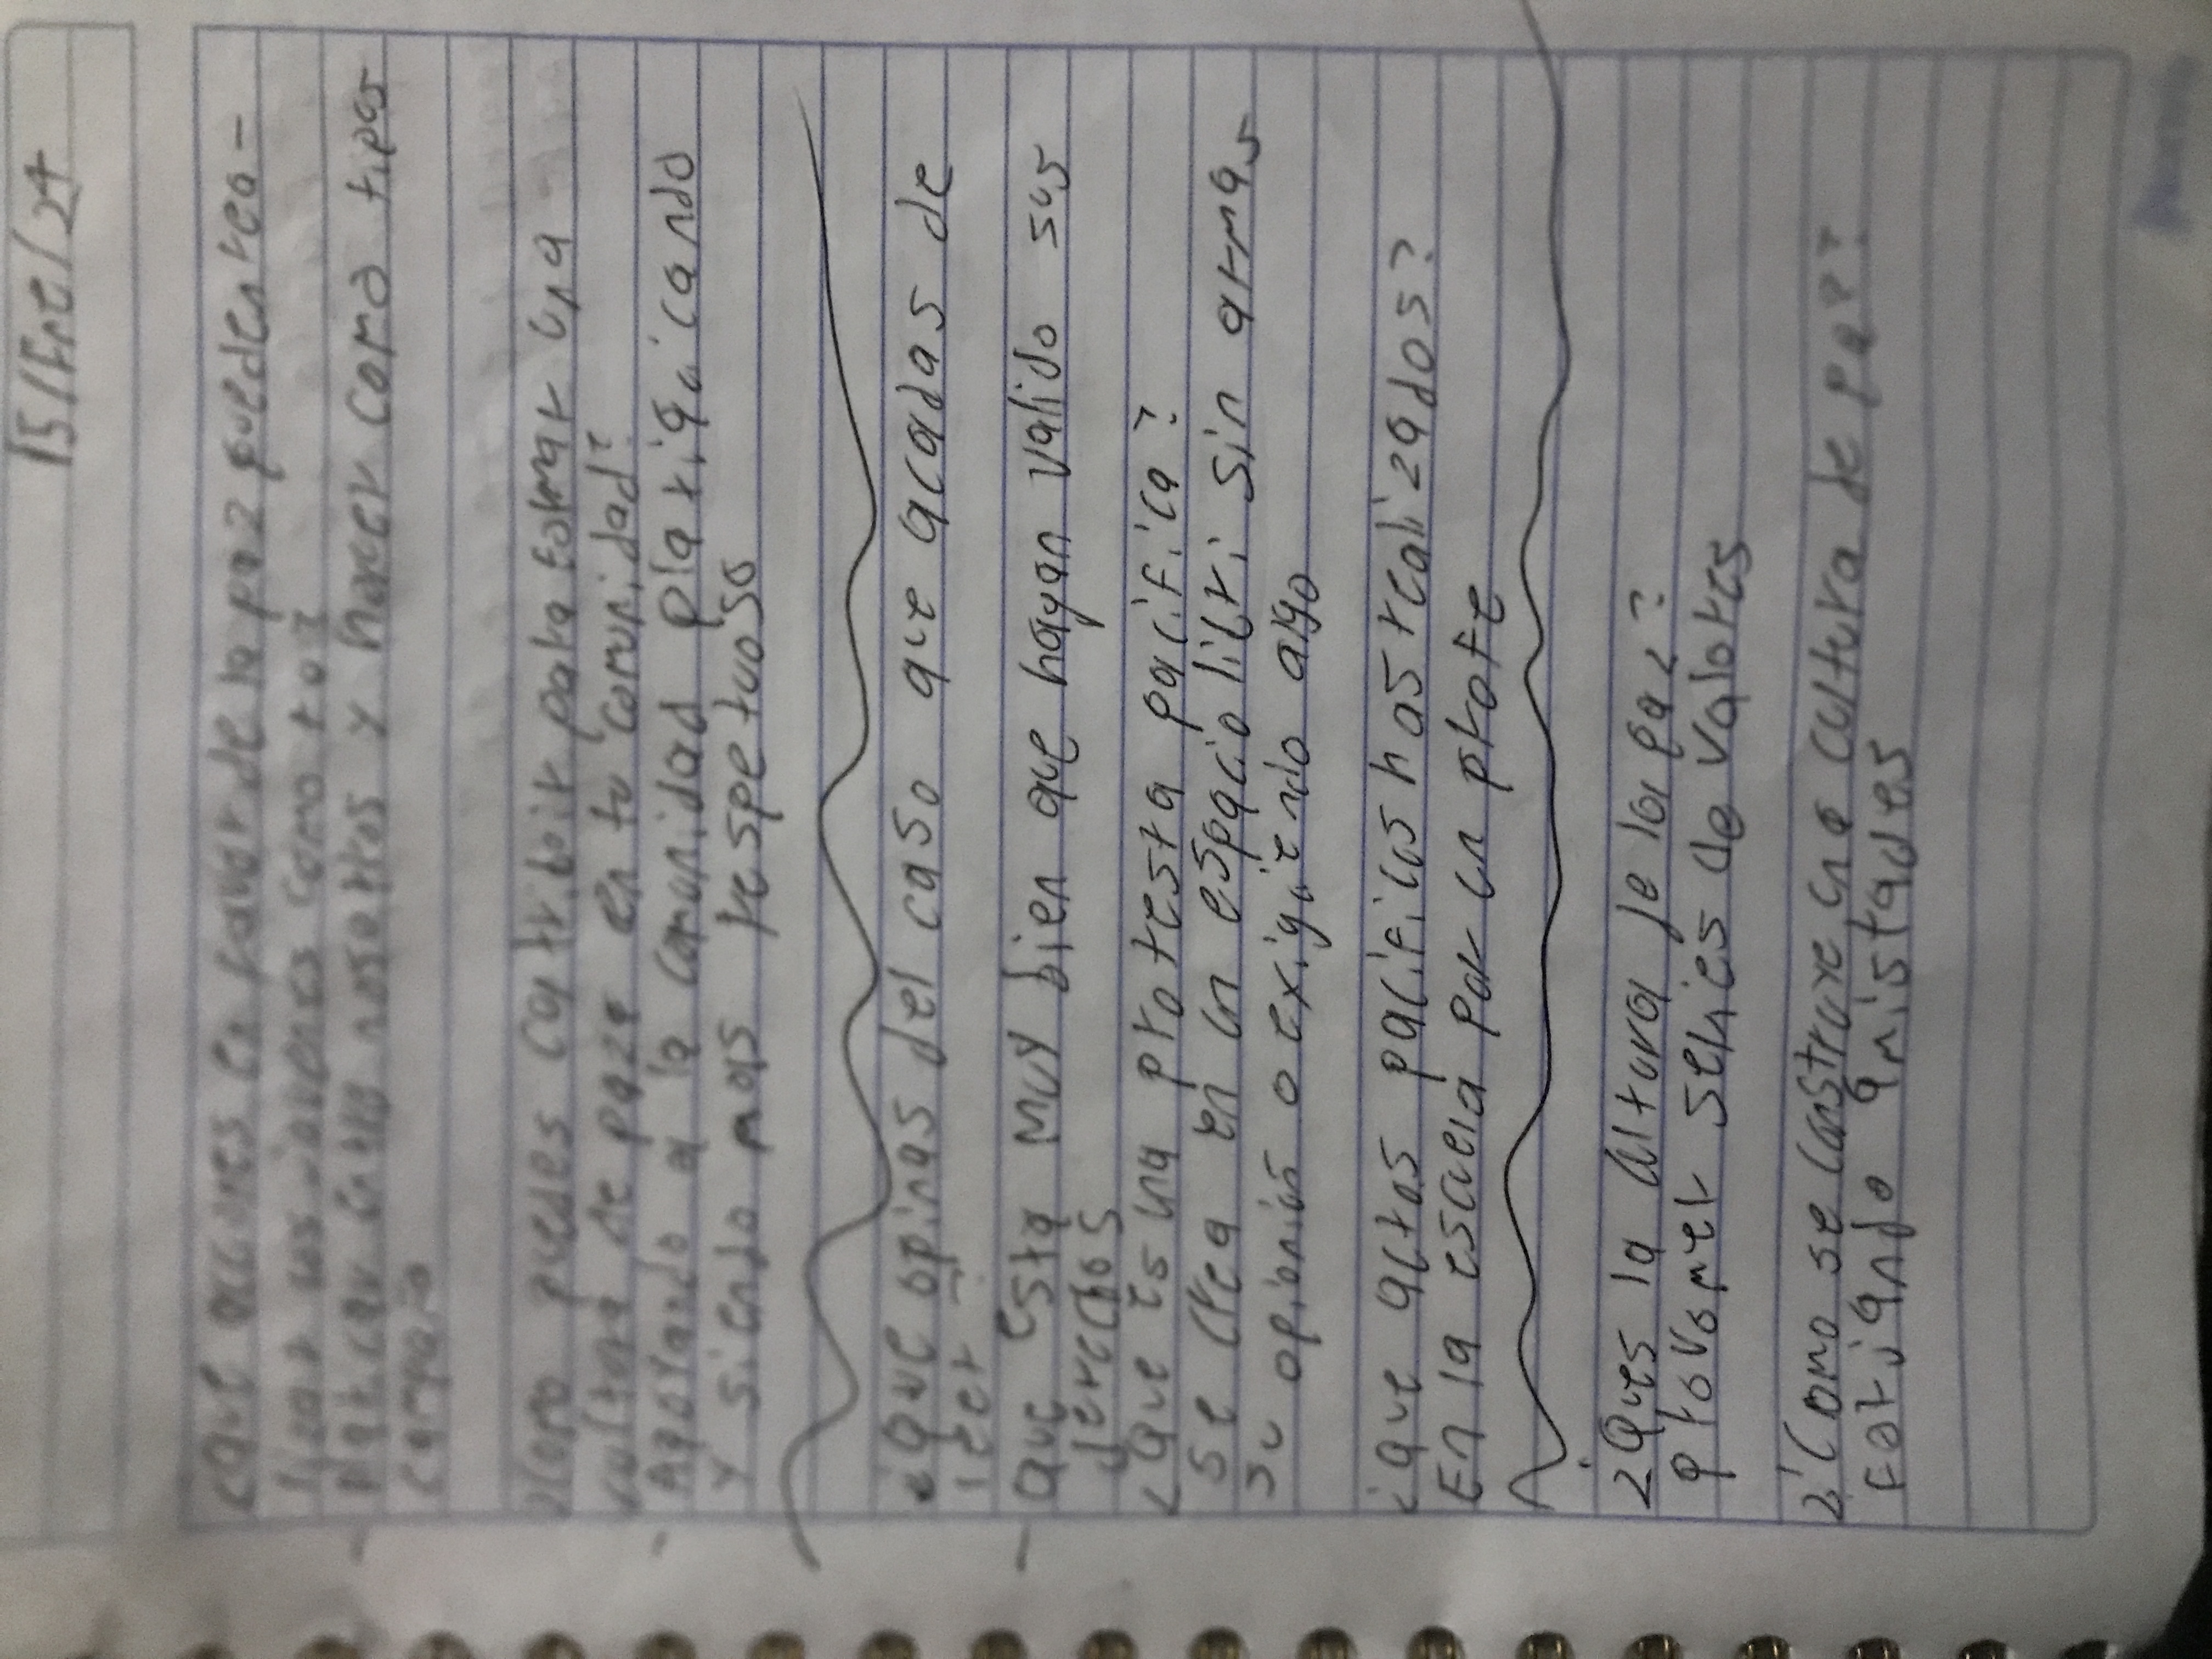 15/Ene/24
¿que acciones en favor de la paz pueden rea-
lizar los jovenes como to?
Platicar entre nosotros y hacer como tipos
campaña
¿Como puedes contriboir para formar una
cultura de paze en tu comunidad?
Apoyando a la comonidad platiquicando
y siendo mas respetuoso
¿Que opinas del caso que acadas de
leer
que esta muy bien que hayan valido sus
derechos
¿Que es una protesta pacifica?
se crea en un espacio libri sin armas
su opinion o exiguiendo algo
¿que actos pacificos has realizados?
En la escuela por un profe
¿Ques la cultura de la paz?
provomer series de valores
¿Como se construye una cultura de paz?
Forjando amistades